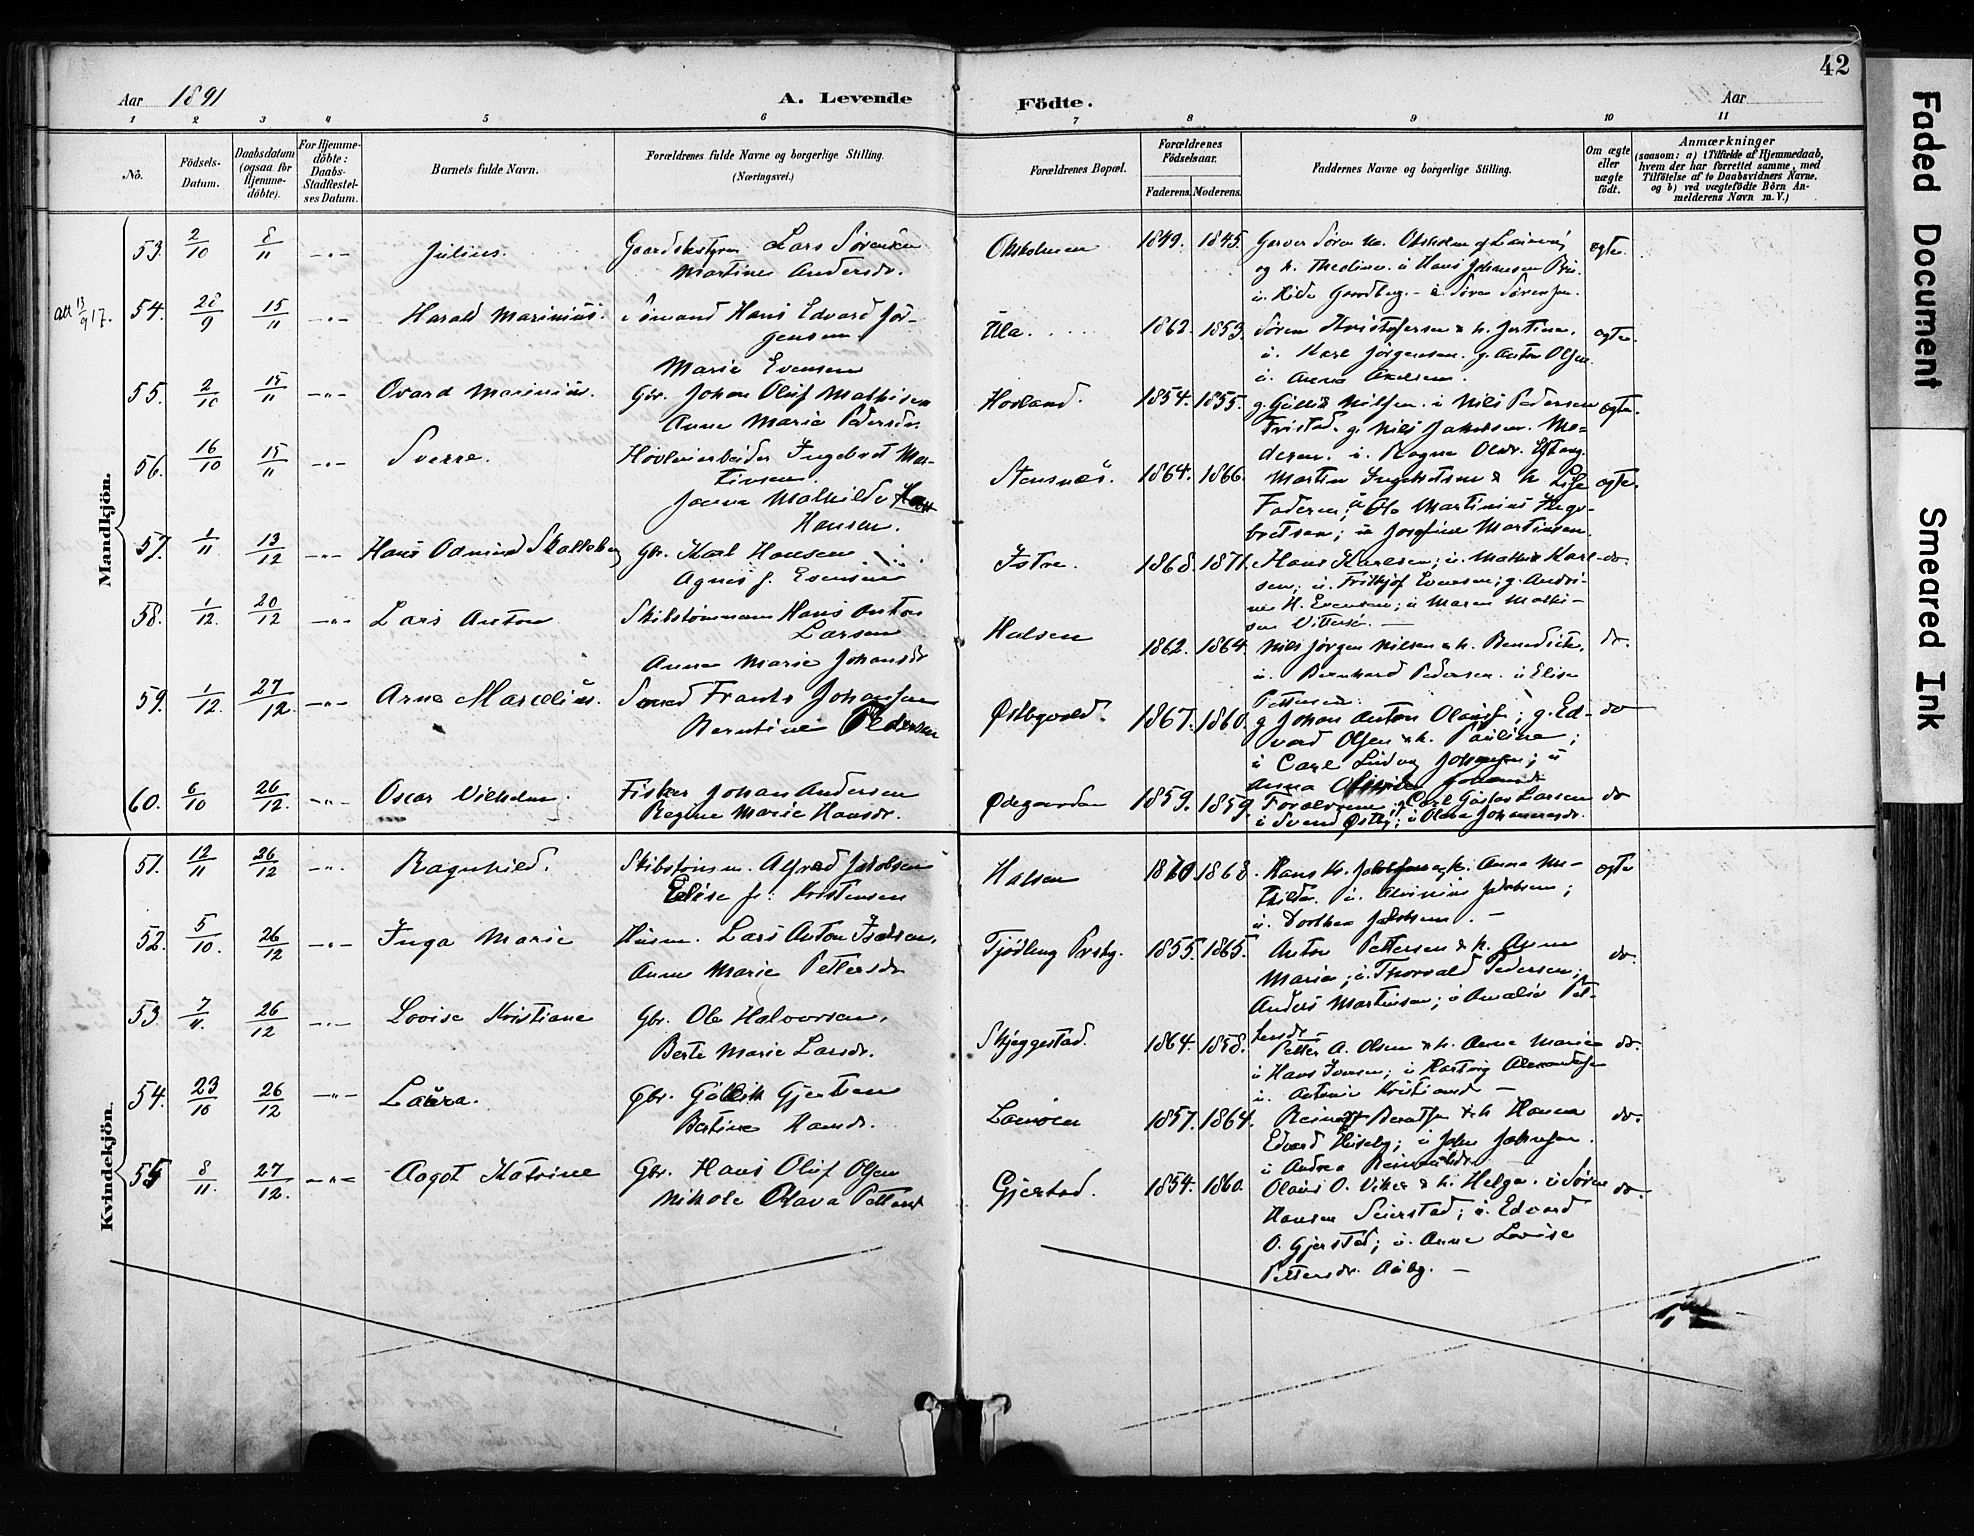 42
Aar 1891
A. Levende
Födte.
Aar
1 2 3 4 5 6 7 8 9 10 11
No.
Födsels-Datum.
Daabsdatum (ogsaa for Hjemme-döbte).
For Hjemme-döbte: Daabs-Stadfæstel-ses Datum.
Barnets fulde Navn.
Forældrenes fulde Navne og borgerlige Stilling.
(Næringsvei.)
Forældrenes Bopæl.
Forældrenes Födselsaar.
Faderens. Moderens.
Faddernes Navne og borgerlige Stilling.
Om ægte eller uægte födt.
Anmærkninger
(saasom: a) i Tilfælde af Hjemmedaab, hvem der har forrettet samme, med Tilföielse af to Daabsvidners Navne, og b) ved uægtefödte Börn An-melderens Navn m. V.)
Mandkjön.
53. 2/10 8/11 -"- Julius. Gaardsbestyrer Lars Sørensen
Martine Andersdr.
1849. 1845. ægte.
og h. Thedine. u Hans Johnsen
att 13/9 17.
54. 28/9 15/11 -"- Harald Marinius. Sömand Hans Edvard Jör-
gensen
Marie Evensen
Ula. 1862. 1853. Sören Kristofersen & h. Jertine. ægte.
u. Karl Jörgensen. g. Anton Olsen.
u. Anna Axelsen.
55. 2/10 15/11 -"- Ovard Marinius. Gbr. Johan Oluf Mathisen
Anne Marie Pedersdr.
Hovland. 1854. 1855. g. Gullik Nilsen. u Nils Pedersen ægte.
Fristad. g. Nils Jakobsen. Mo-
deren. u. Ragna Olsdr.
56. 16/10 15/11 -"- Sverre. Hövleriarbeider Ingebret Mar-
tinsen.
Joana Mathilde
Hansen.
Stensnæs. 1864. 1866. Martin Ingebretsen & h. Lise ægte.
Faderen; u Ole Martinius Inge-
bretsen; u Josefine Martinsen.
57. 1/11 13/12 -"- Hans Odmund Skalleberg Gbr. Karl Hansen
Agnes f. Evensen
Istre. 1868. 1871. Hans Karlsen; u. Mathis Karl- do.
sen; u. Fritjof Evensen; g. Andri-
ne H. Evensen; u Maren Mathi-
sen Vittersö. —
58. 1/12. 20/12 -"- Lars Anton Skibstömmerm Hans Anton
Larsen
Anne Marie Johansdr
Halsen 1862. 1864. Nils Jörgen Nilsen & h. Benedicte, do.
u. Bernhard Pedersen. u Elise
Pettersen.
59. 1/12. 27/12. -"- Arne Marcelius. Smed Frants Johansen
Berntine Pedersen
Østbyvold. 1867. 1860. g Johan Anton Olausen; g. Ed- do
vard Olsen & h. Pauline;
u Carl Ludvig Johansen; u
Anna
60. 6/10 26/12. -"- Oscar Vilhelm. Fisker Johan Andersen
Regine Marie Hansdr.
Ødegaarden 1859. 1859. Forældrene g Carl Gustav Larsen do
u Svend Østby; u Olava Johannesdr.
Kvindekjön.
51. 12/11 26/12 -"- Ragnhild. Skibstömm. Alfred Jakobsen
Elise f. Kristensen
Halsen 1870. 1868. Hans Kr. Jakobsen og k. Anna Ma- ægte
thilde. u. Jakobsen;
u. Dorthea Jakobsen. —
52. 5/10. 26/12 -"- Inga Marie Husm. Lars Anton Isaksen.
Anne Marie Pettersdr
Tjödling Prestg. 1855. 1865. Anton Pettersen & h. Anne do.
Marie; u. Thorvald Pedersen;
Anders Martinsen; u Amalie Pet-
tersdr
53. 7/11. 26/12 -"- Lovise Kristiane Gbr. Ole Halvorsen,
Berte Marie Larsdr.
Skjeggestad. 1864. 1858. Petter A. Olsen & h. Anne Marie do.
u Hans Iversen; u Hartvig Alexandersen
u. Antonie Kristiansd —
54. 23/10 26/12 -"- Laura. Gbr. Gullik Gjertsen
Bertine Hansdr.
Lamöen 1857. 1864. Reinert Berntsen & h Hanna do.
Edvard Huseby; u John Johnsen.
u Andrea
55 8/11. 27/12. -"- Aagot Katrine Gbr. Hans Oluf Olsen
Nikole Olava Pettersdr
Gjerstad. 1854. 1860. Olaus O. Viker & h. Helga. u Sören do.
Hansen Seierstad; u. Edvard
O. Gjerstad; u. Anne Lovise
Pettersdr. Auby. —
Faded Document
Smeared Ink